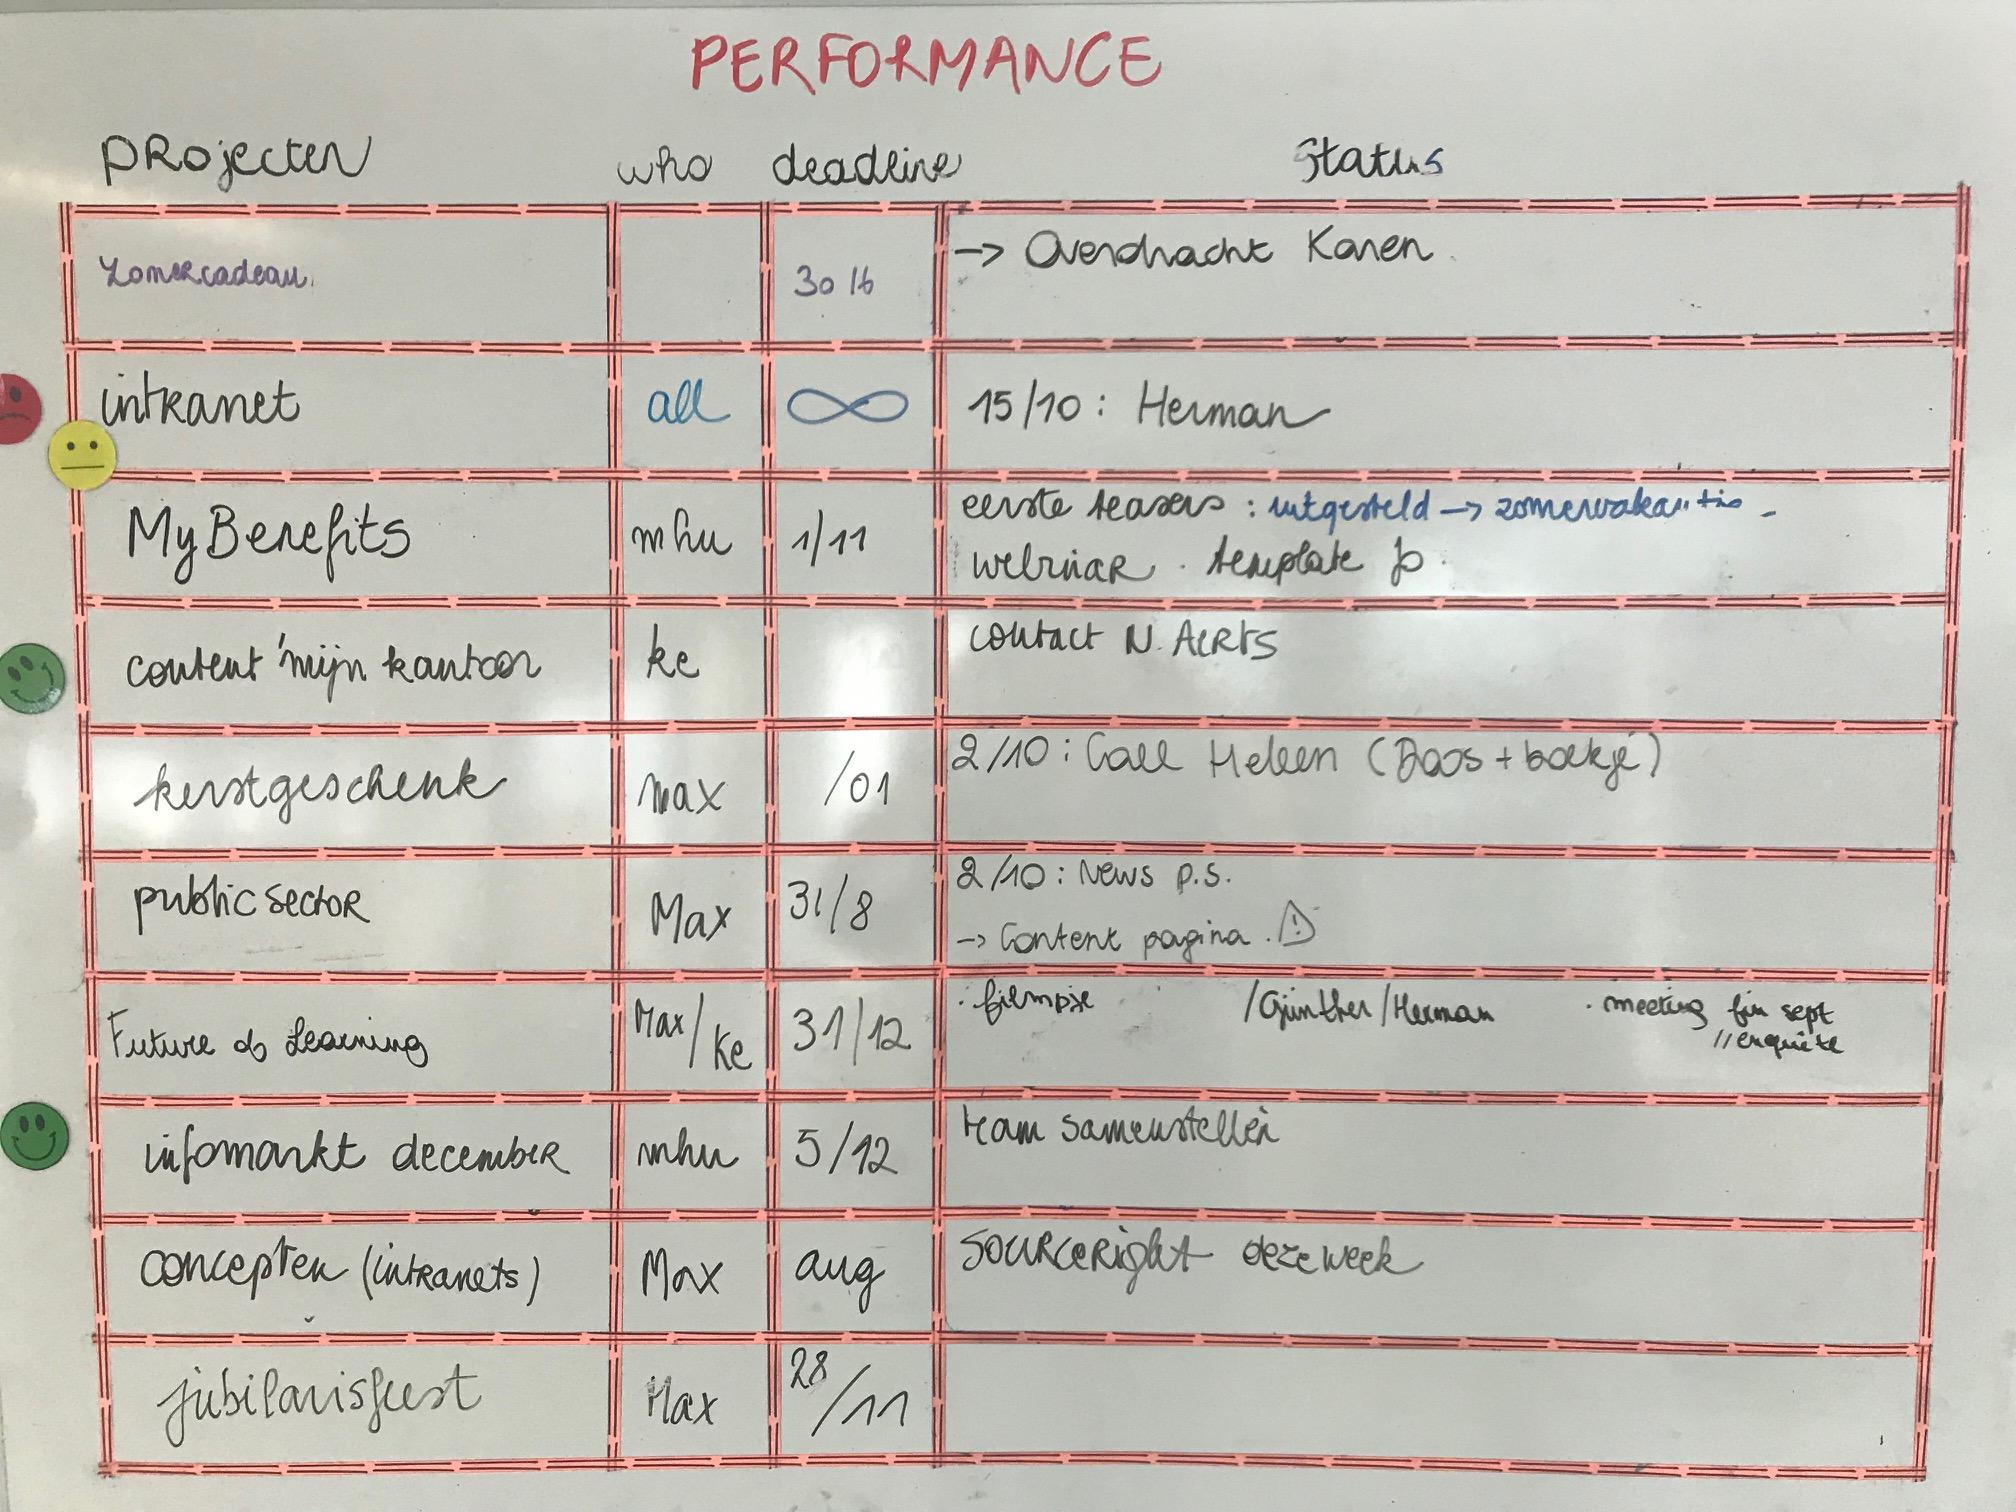 PERFORMANCE
projecten who deadline Status
Zomercadeau. 30 16 → Overdracht Karen
intranet all ∞ 15/10: Herman
MyBenefits mhu 1/11 eerste teasers : uitgesteld → zomervakantie -
webinar . template Jo
content 'mijn kantoor ke contact N. Aerts
kerstgeschenk max /01 2/10: Call Heleen (Doos + boekje)
public sector Max 31/8 2/10: News p.s.
→ Content pagina .
Future of Learning Max/ke 31/12 . filmpje /Günther/Herman . meeting fin sept
//enquête
infomarkt december mhu 5/12 team samenstellen
concepten (intranets) Max aug SOURCERight deze week
jubilarisfeest Max 28/11